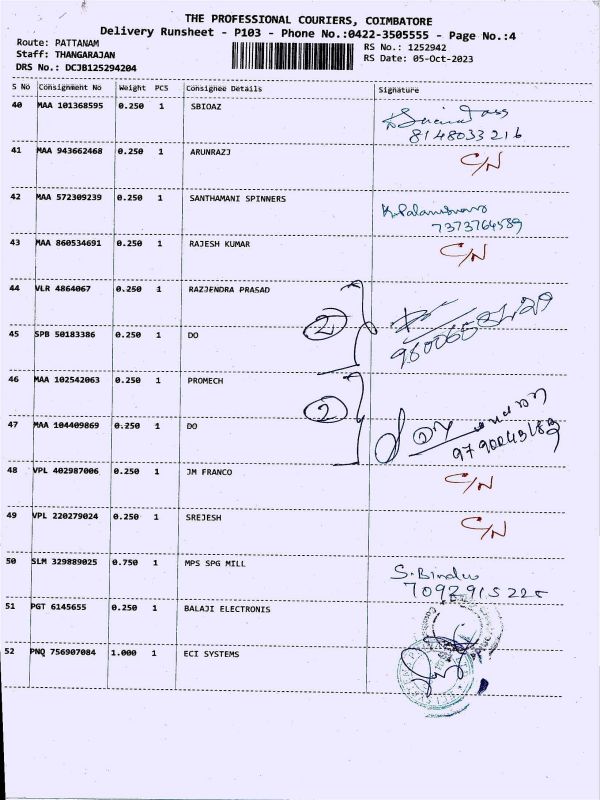 THE PROFESSIONAL COURIERS, COIMBATORE
Delivery Runsheet - P103 - Phone No.:0422-3505555 - Page No.:4
Route: PATTANAM
Staff: THANGARAJAN
DRS No.: DCJB125294204
RS No.: 1252942
RS Date: 05-Oct-2023
S No Consignment No Weight PCS Consignee Details Signature
40 MAA 101368595 0.250 1 SBIOAZ
8148033216
41 MAA 943662468 0.250 1 ARUNRAZJ C/N
42 MAA 572309239 0.250 1 SANTHAMANI SPINNERS
7373764589
43 MAA 860534691 0.250 1 RAJESH KUMAR C/N
44 VLR 4864067 0.250 1 RAZJENDRA PRASAD
2
45 SPB 50183386 0.250 1 DO
46 MAA 102542063 0.250 1 PROMECH
2
47 MAA 104409869 0.250 1 DO
48 VPL 402987006 0.250 1 JM FRANCO C/N
49 VPL 220279024 0.250 1 SREJESH C/N
50 SLM 329889025 0.750 1 MPS SPG MILL S.Bindu
51 PGT 6145655 0.250 1 BALAJI ELECTRONIS
52 PNQ 756907084 1.000 1 ECI SYSTEMS